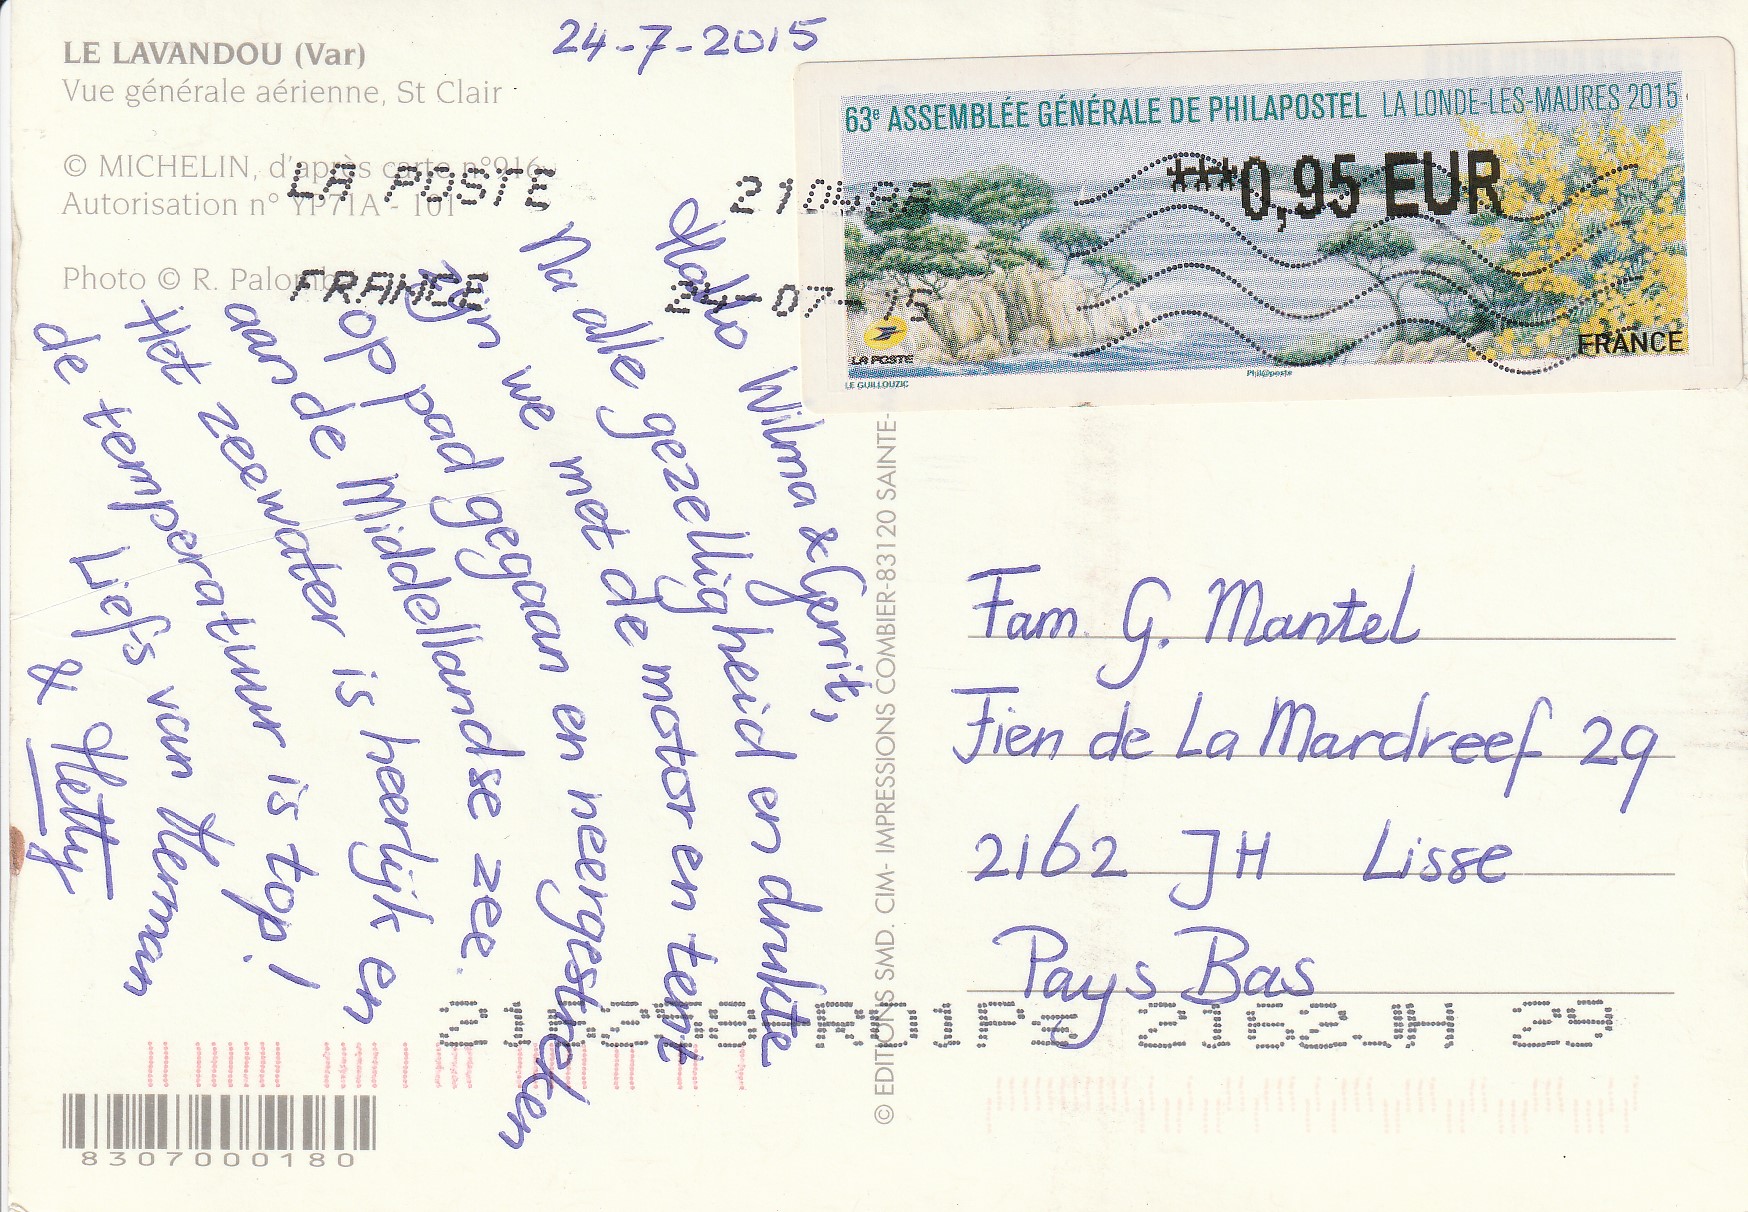 24-7-2015
LE LAVANDOU (Var)
Vue générale aérienne, St Clair
© MICHELIN, d'après carte n°916
Autorisation n° YP71A - 101
Photo © R. Palomb
LA POSTE
FRANCE
07-15
63e ASSEMBLÉE GÉNÉRALE DE PHILAPOSTEL LA LONDE-LES-MAURES 2015
***0,95 EUR
LA POSTE
FRANCE
LE GUILLOUZIC
Phil@poste
Hallo Wilma & Gerrit,
Na alle gezelligheid en drukte
zijn we met de motor en tent
op pad gegaan en neergestreken
aan de Middellandse zee.
Het zeewater is heerlijk en
de temperatuur is top!
Liefs van Herman
& Hetty
© EDITIONS SMD. CIM- IMPRESSIONS COMBIER-83120 SAINTE-
Fam. G. Mantel
Fien de La Mardreef 29
2162 JH Lisse
Pays Bas
2162JH 29
8307000180